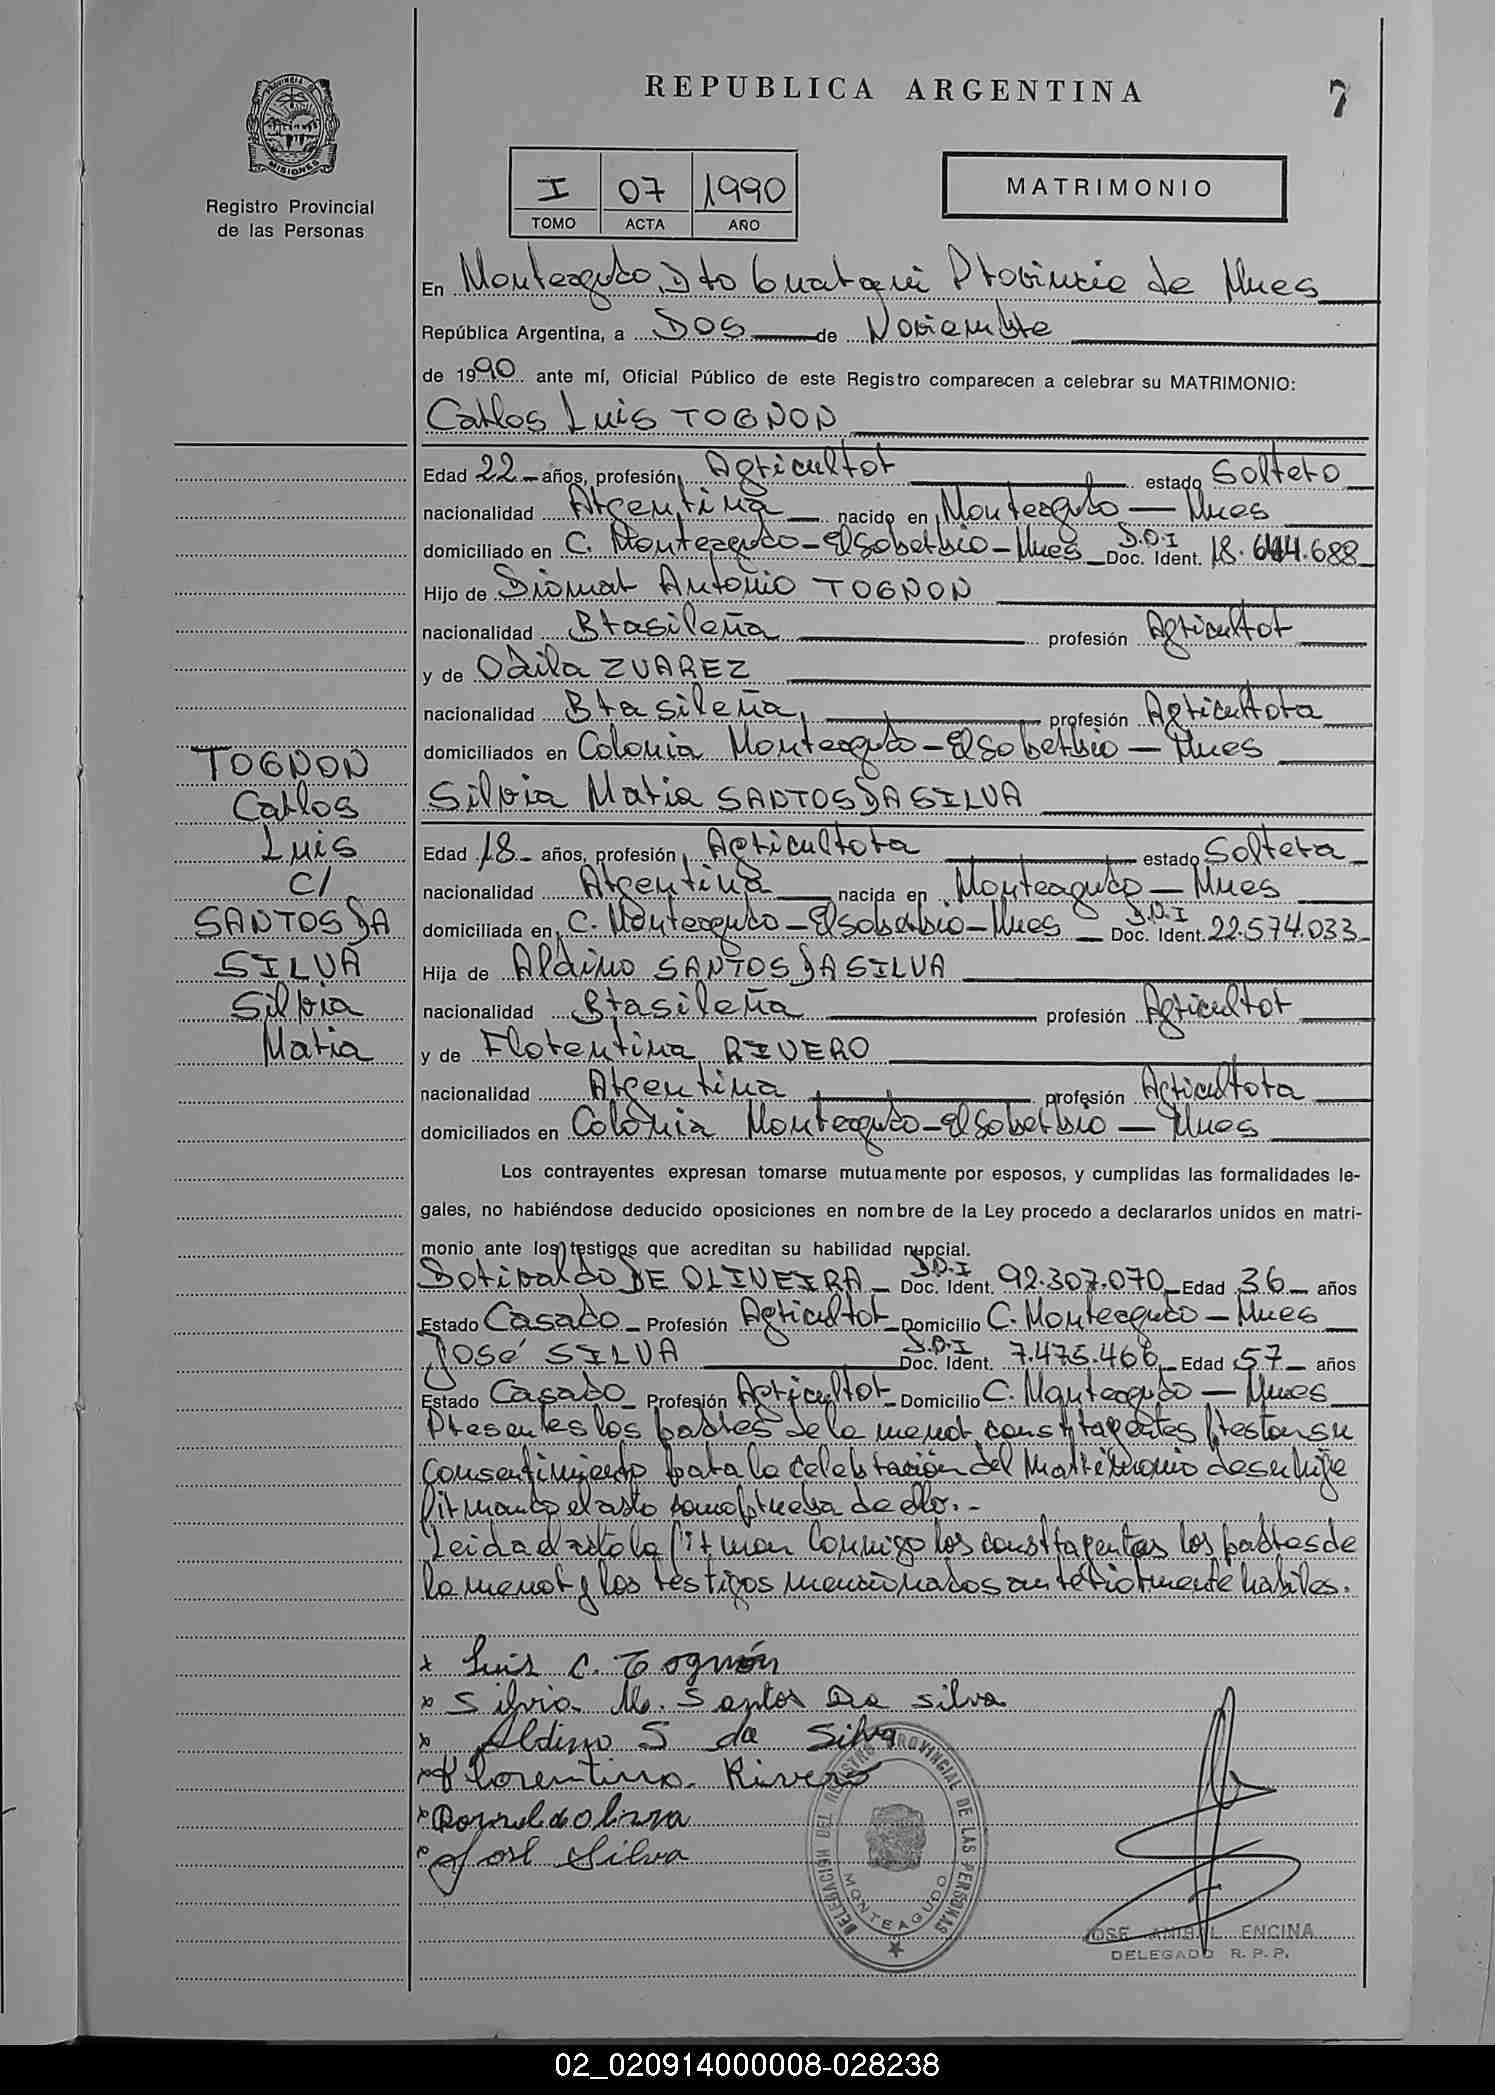 REPUBLICA ARGENTINA
7
PROVINCIA DE MISIONES
Registro Provincial
de las Personas
I 07 1990
TOMO ACTA AÑO
MATRIMONIO
En Monteagudo, Dto Guaraqui Provincia de Mnes
República Argentina, a Dos de Noviembre
de 1990 ante mí, Oficial Público de este Registro comparecen a celebrar su MATRIMONIO:
Carlos Luis TOGNON
Edad 22 años, profesión, Agricultor estado Soltero
nacionalidad Argentina nacido en Monteagudo - Mnes
domiciliado en C. Monteagudo - El Soberbio - Mnes D.N.I Doc. Ident. 18.644.688
Hijo de Diomar Antonio TOGNON
nacionalidad Brasileña profesión Agricultor
y de Odila ZUAREZ
nacionalidad Brasileña, profesión Agricultora
domiciliados en Colonia Monteagudo - El Soberbio - Mnes
Silvia Maria SANTOS DA SILVA
Edad 18 años, profesión, Agricultora estado Soltera
nacionalidad Argentina nacida en Monteagudo - Mnes
domiciliada en, C. Monteagudo - El Soberbio - Mnes D.N.I Doc. Ident. 22.574.033
Hija de Aldino SANTOS DA SILVA
nacionalidad Brasileña profesión Agricultor
y de Florentina RIVERO
nacionalidad Argentina profesión Agricultora
domiciliados en Colonia Monteagudo - El Soberbio - Mnes
TOGNON
Carlos
Luis
C/
SANTOS DA
SILVA
Silvia
Maria
Los contrayentes expresan tomarse mutuamente por esposos, y cumplidas las formalidades le-
gales, no habiéndose deducido oposiciones en nombre de la Ley procedo a declararlos unidos en matri-
monio ante los testigos que acreditan su habilidad nupcial.
Dorivaldo DE OLIVEIRA - D.N.I Doc. Ident. 92.307.070 Edad 36 años
Estado Casado - Profesión Agricultor - Domicilio C. Monteagudo - Mnes
José SILVA D.N.I Doc. Ident. 7.475.466 Edad 57 años
Estado Casado - Profesión Agricultor - Domicilio C. Monteagudo - Mnes
Presentes los padres de la menor contrayentes prestan su
consentimiento para la celebración del Matrimonio de su hija
firmando el acto como prueba de ello.-
Leida el acto la firman conmigo los contrayentes los padres de
la menor y los testigos mencionados anteriormente habiles.
x Luis C. Tognón
x Silvia M. Santos Da silva
x Aldino S da Silva
x Florentina Rivero
x
x José Silva
DELEGACION DEL REGISTRO PROVINCIAL DE LAS PERSONAS
MONTEAGUDO
JOSE ANIBAL ENCINA
DELEGADO R. P. P.
02_020914000008-028238